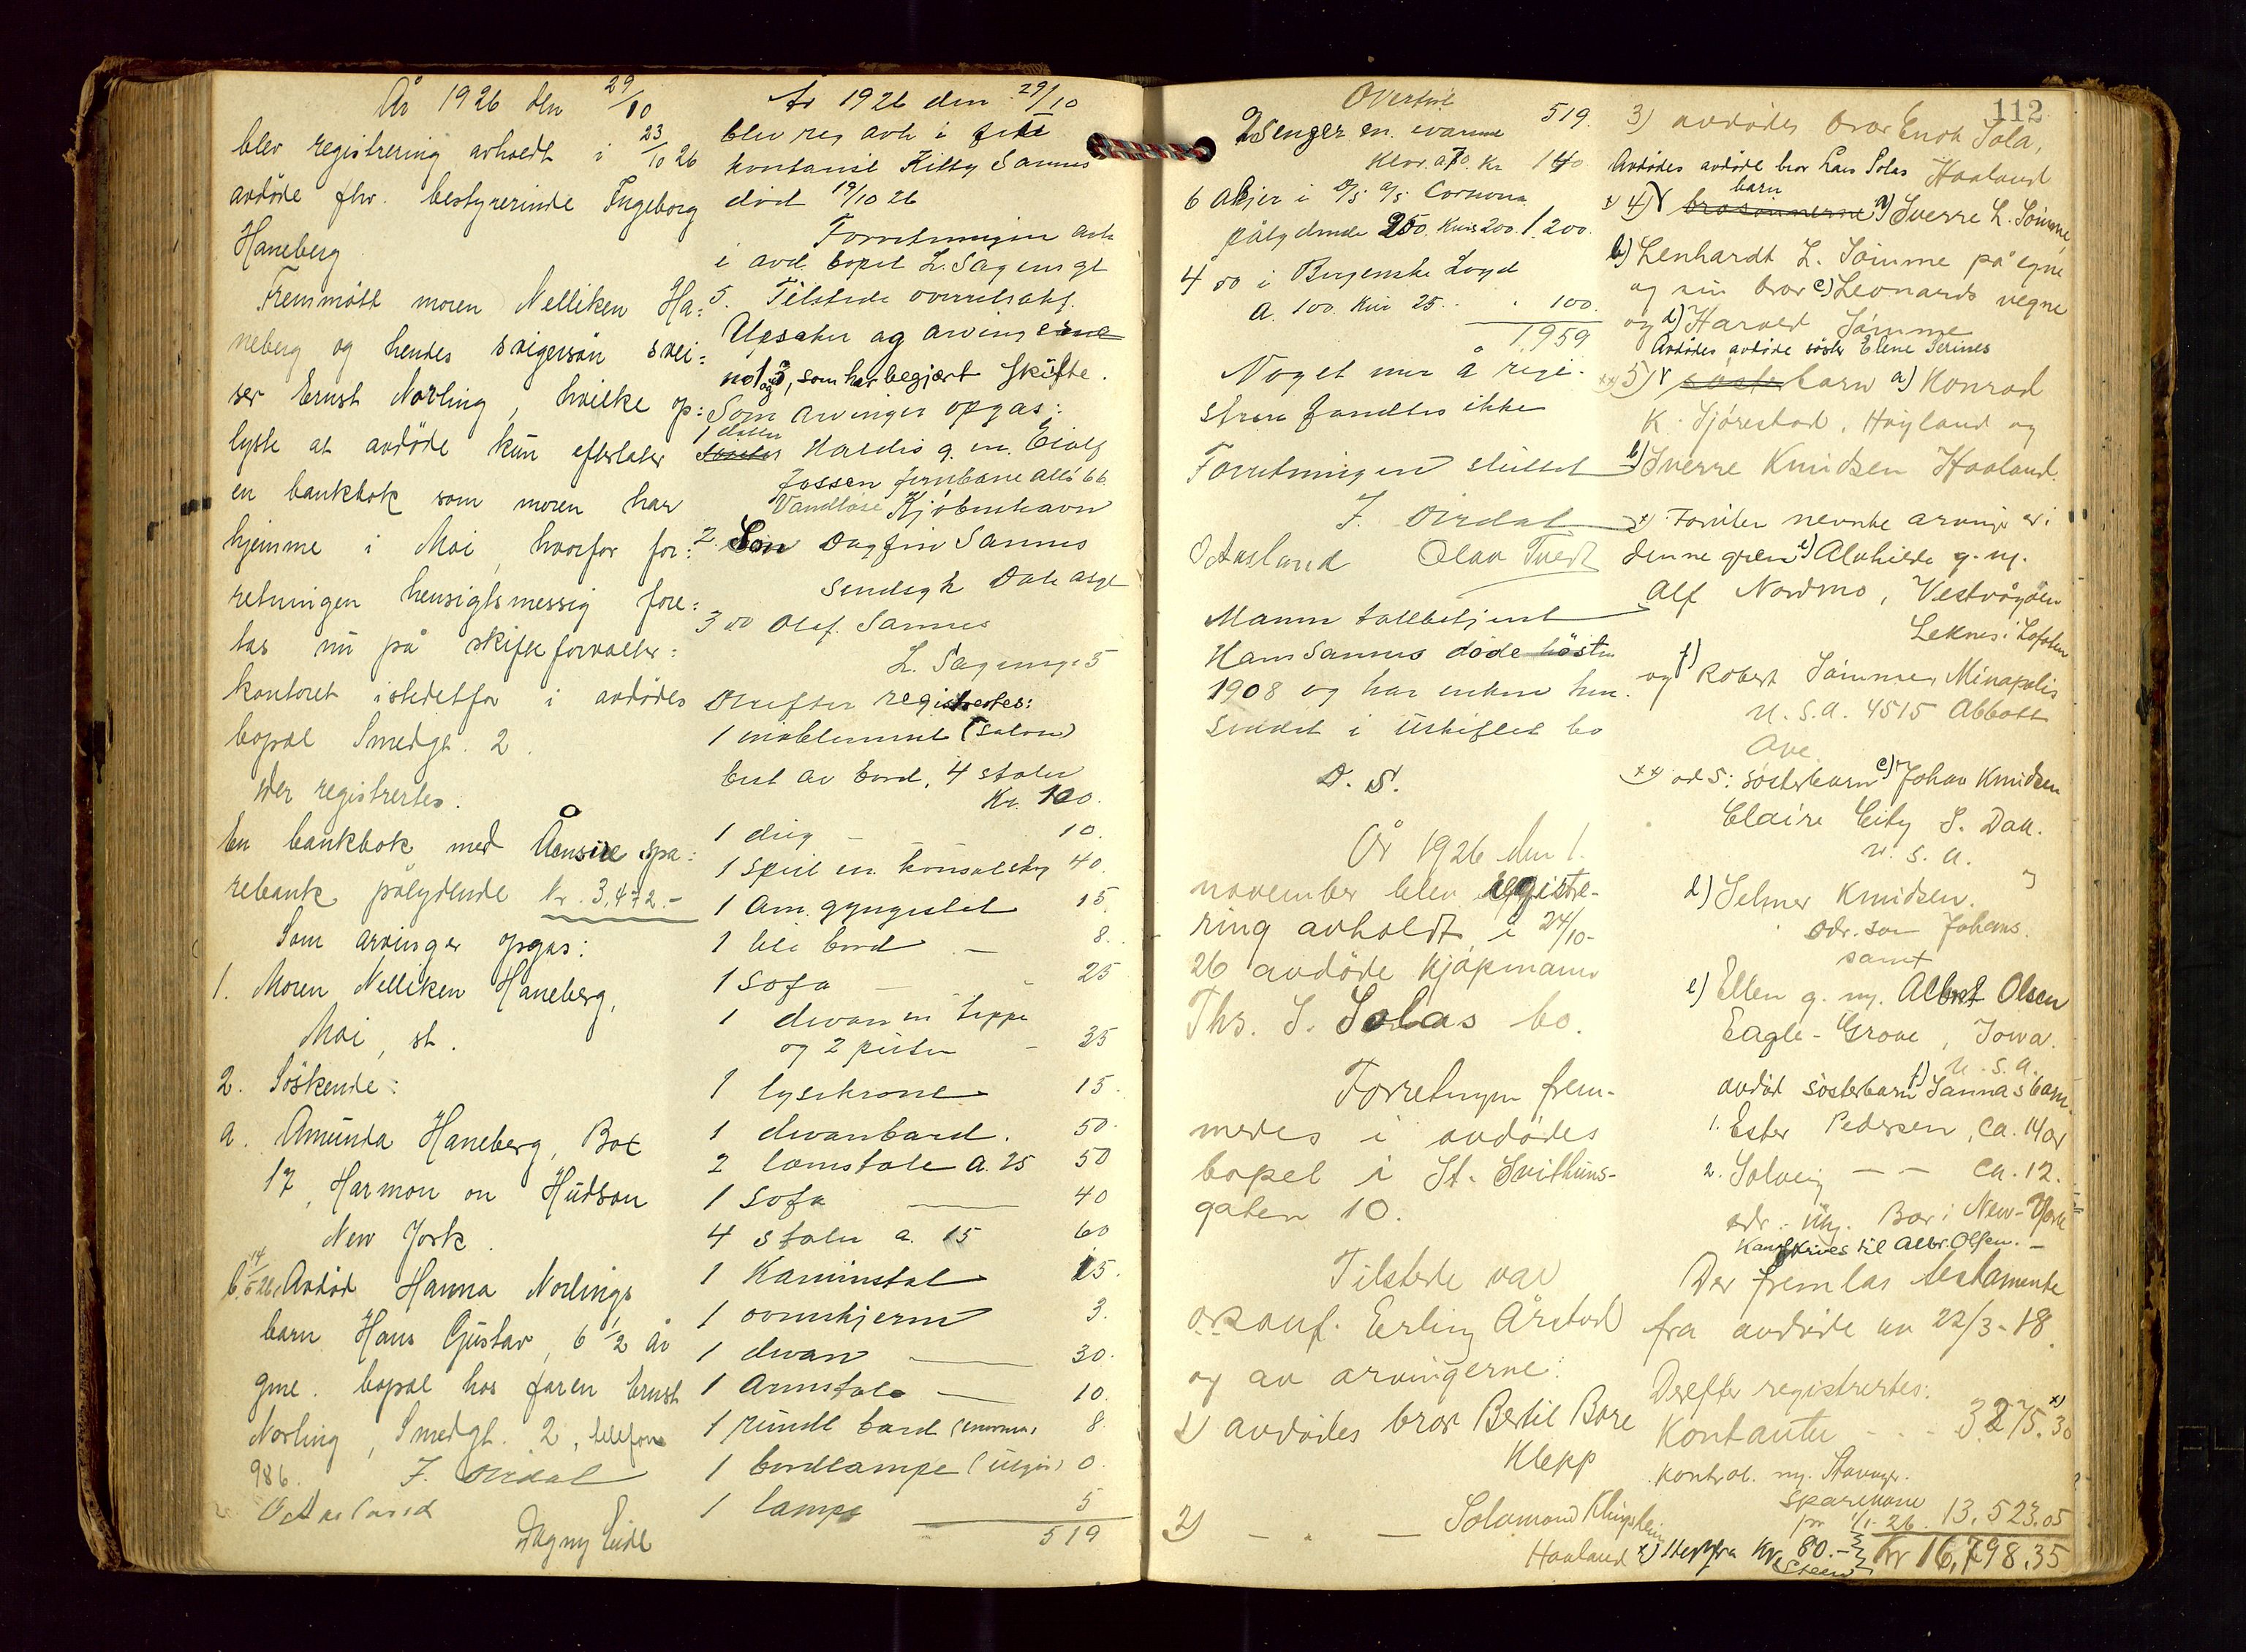 År 1926 den 29/10
blev registrering avholdt i 23/10 26
avdöde fhv. bestyrerinde Ingeborg
Haneberg
Fremmött moren Nelliken Ha:
neberg og hendes svigersön svei:
ser Ernst Norling, hvilke op:
lyste at avdöde kun efterlater
en bankbok som moren har
hjemme i Moi, hvorfor for:
retningen hensigtsmessig fore:
tas nu på skifteforvalter:
kontoret istedetfor i avdödes
bopæl Smedgt. 2.
Der registrertes.
En bankbok med Åensire spa:
rebank pålydende kr. 3,472.-
Som arvinger opgas:
1. Moren Nelliken Haneberg,
Moi, st.
2. Söskende:
a. Amunda Haneberg, Box
17, Harmon on Hudson
New York.
b. 14/5 26 Avdöd Hanna Norlings
barn Hans Gustav, 6 1/2 år
gml. bopæl hos faren Ernst
Norling, Smedgt. 2, telefon
986. F. Oirdal
O Aasland
Dagny Eide
År 1926 den 29/10
blev reg avh i
Kitty Sannes
död 19/10 26
Forretningen avh
i avd. bopel L. Sagens gt
5. Tilstede overretssakf.
Upsaker og arvingerne
no 1 og 3, som har begjært skifte.
Som arvinger opgas:
1 datter Haldis g. m. Eiolf
Jossen Jernbane allé 66
Vandløse Kjöbenhavn
2. Sön Dagfin Sannes
3 do Olef. Sannes
L. Sagensg. 5
Derefter registrertes:
1 møblement (salon)
best av bord, 4 stoler
Kr. 100.
1 dug - 10.
1 speil m. konsolskap 40.
1 Am. gyngestol 15.
1 lite bord - 8.
1 Sofa - 25
1 divan m teppe
og 2 puter - 35
1 lysekrone 15.
1 divanbord. 50.
2 lænstole a. 25 50
1 Sofa 40
4 stoler a. 15 60
1 Kaminstol 15.
1 ovnskjerm 3.
1 divan 30.
1 Armstol 10.
1 rundt bord 8.
1 bordlampe 0.
1 lampe 5
519
112
Overført 519.
2 Senger m.
a 70 Kr 140
6 Aksjer i
pålydende 250. Kurs 200. 1,200.
4 do i Bergenske Loyd
a. 100 Kurs 25. 100.
1,959
Noget mer å regi-
strere fandtes ikke
Forretningen sluttet
F. Oirdal
O Aasland Olav Tvedt
Mannen tollbetjent
Hans Sannes döde hösten
1908 og har enken hen
siddet i uskiftet bo
D. S.
År 1926 den 1.
november blev registre-
ring avholdt i 24/10-
26 avdöde kjöpmann
Ths. S. Solas bo.
Forretningen frem-
medes i avdödes
bopel i St. Svithuns-
gaten 10.
Tilstede var
o.r.sakf. Erling Årstad
og av arvingerne:
1) avdödes bror Bertil Bore
Klepp
2) - " - Solomond Klungtein
Haaland
3) avdödes bror Enok Sola,
Haaland
Avdödes avdöde bror Lars Solas
x) 4) brorsönnerne barn a) Sverre L. Sömme,
b) Lenhardt L. Sömme på egne
og sin bror c) Leonards vegne
og d) Harald Sömme
Avdödes avdöde söster Elene Serines
xx) 5) söster barn a) Konrad
K. Sjørestad, Höyland og
b) Sverre Knudsen Haaland.
x) Foruten nevnte arvinger er i
denne gren e) Alvhilde g. m.
Alf Nordmo, Vestvågöen
Leknes i Lofoten
og f) Robert Sömme, Minapolis
U. S. A. 4515 Abbott
Ave.
xx) ad 5: sösterbarn c) Johan Knudsen
Claire City S. Dak.
U. S. A.
d) Selmer Knudsen.
adr. som Johans.
samt
e) Ellen g. m. Albert Olsen
Eagle-Grove, Iowa.
U. S. A.
avdöd sösterbarn f) Sannas barn.
1. Ester Pedersen, ca. 14 år
2. Solveig - - ca. 12.
adr. Bor i New-York
Kan skrives til Albr. Olsen. -
Der fremlas testamente
fra avdöde av 22/3-18
Derefter registrertes:
Kontanter - - - 3275.30 x)
Kontrol. m. Stavanger
Sparekasse
pr 1/1-26. 13,523.05
Kr 16,798.35
x) Herfra Kr 80.-
Steen